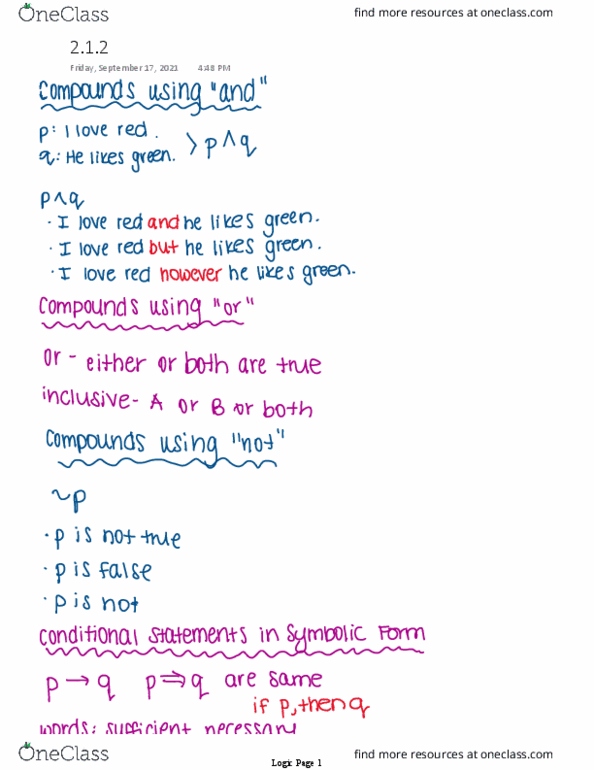 OneClass find more resources at oneclass.com
2.1.2
Friday, September 17, 2021 4:48 PM
Compounds using "and"
p: I love red.
q: He likes green. > p ∧ q
p ∧ q
· I love red and he likes green.
· I love red but he likes green.
· I love red however he likes green.
Compounds using "or"
or - either or both are true
inclusive - A or B or both
Compounds using "not"
~p
· p is not true
· p is false
· p is not
Conditional Statements in Symbolic Form
p → q p ⇒ q are same
if p, then q
words: sufficient necessary
OneClass find more resources at oneclass.com
Logic Page 1